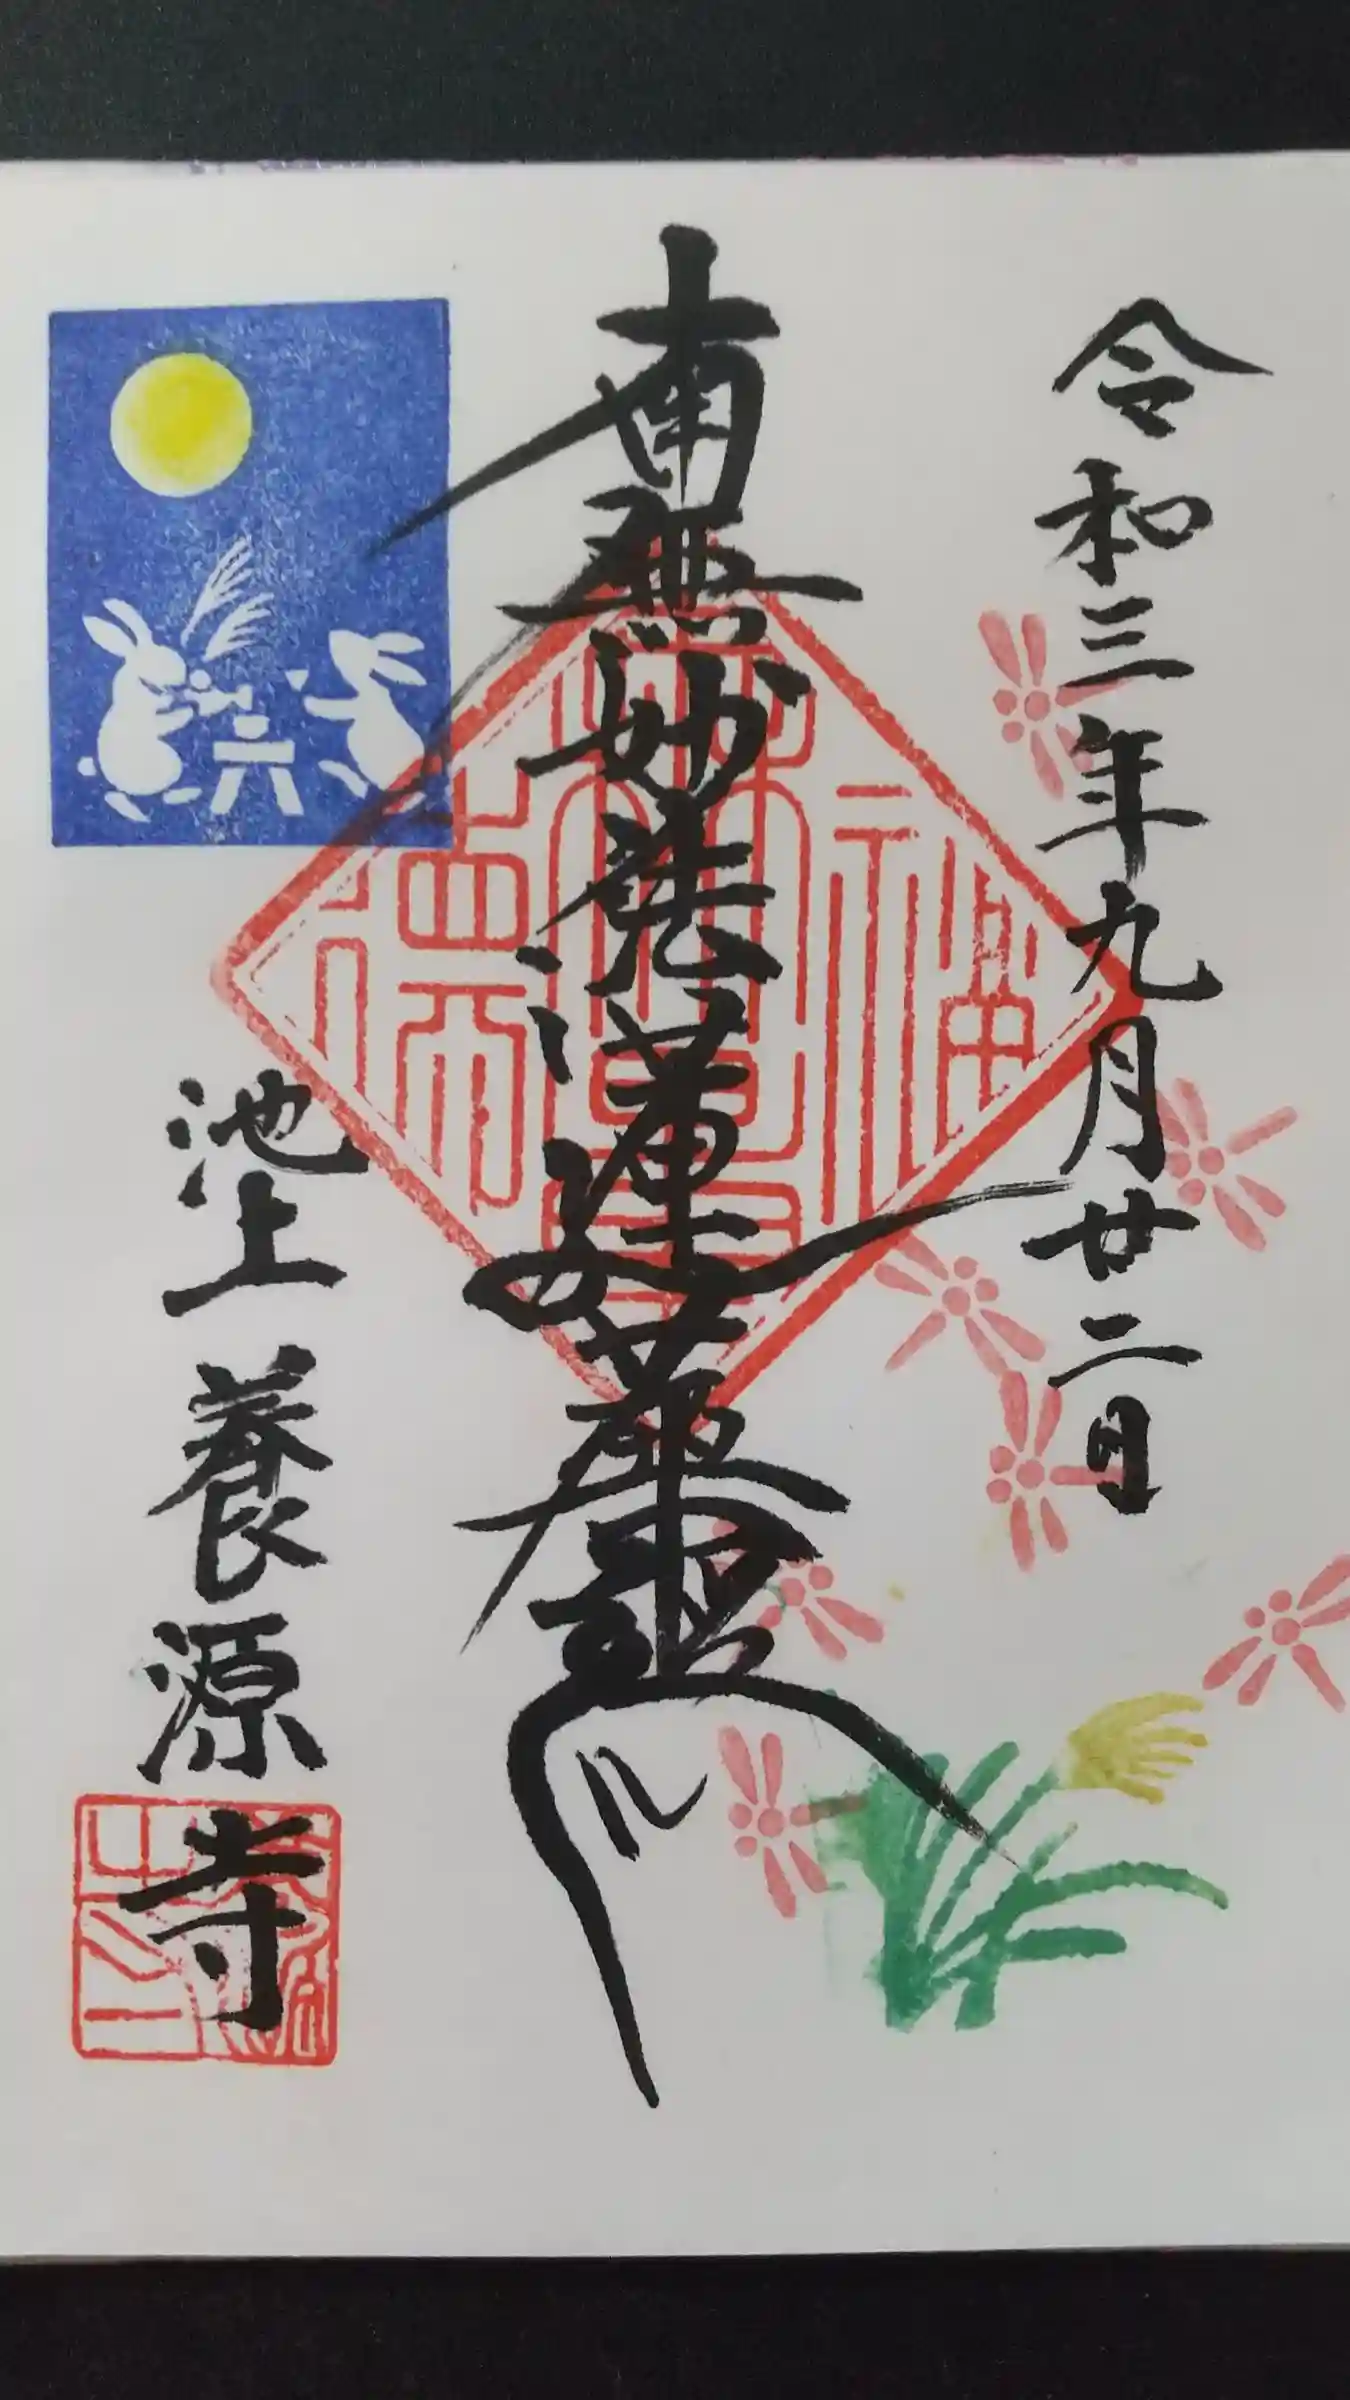 令和三年九月廿二日
南無妙法蓮華経
池上養源寺